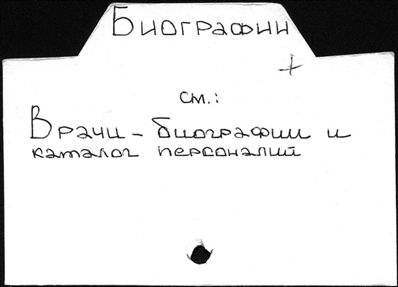 Биографии
+
см.:
Врачи - биографии и
каталог персоналий